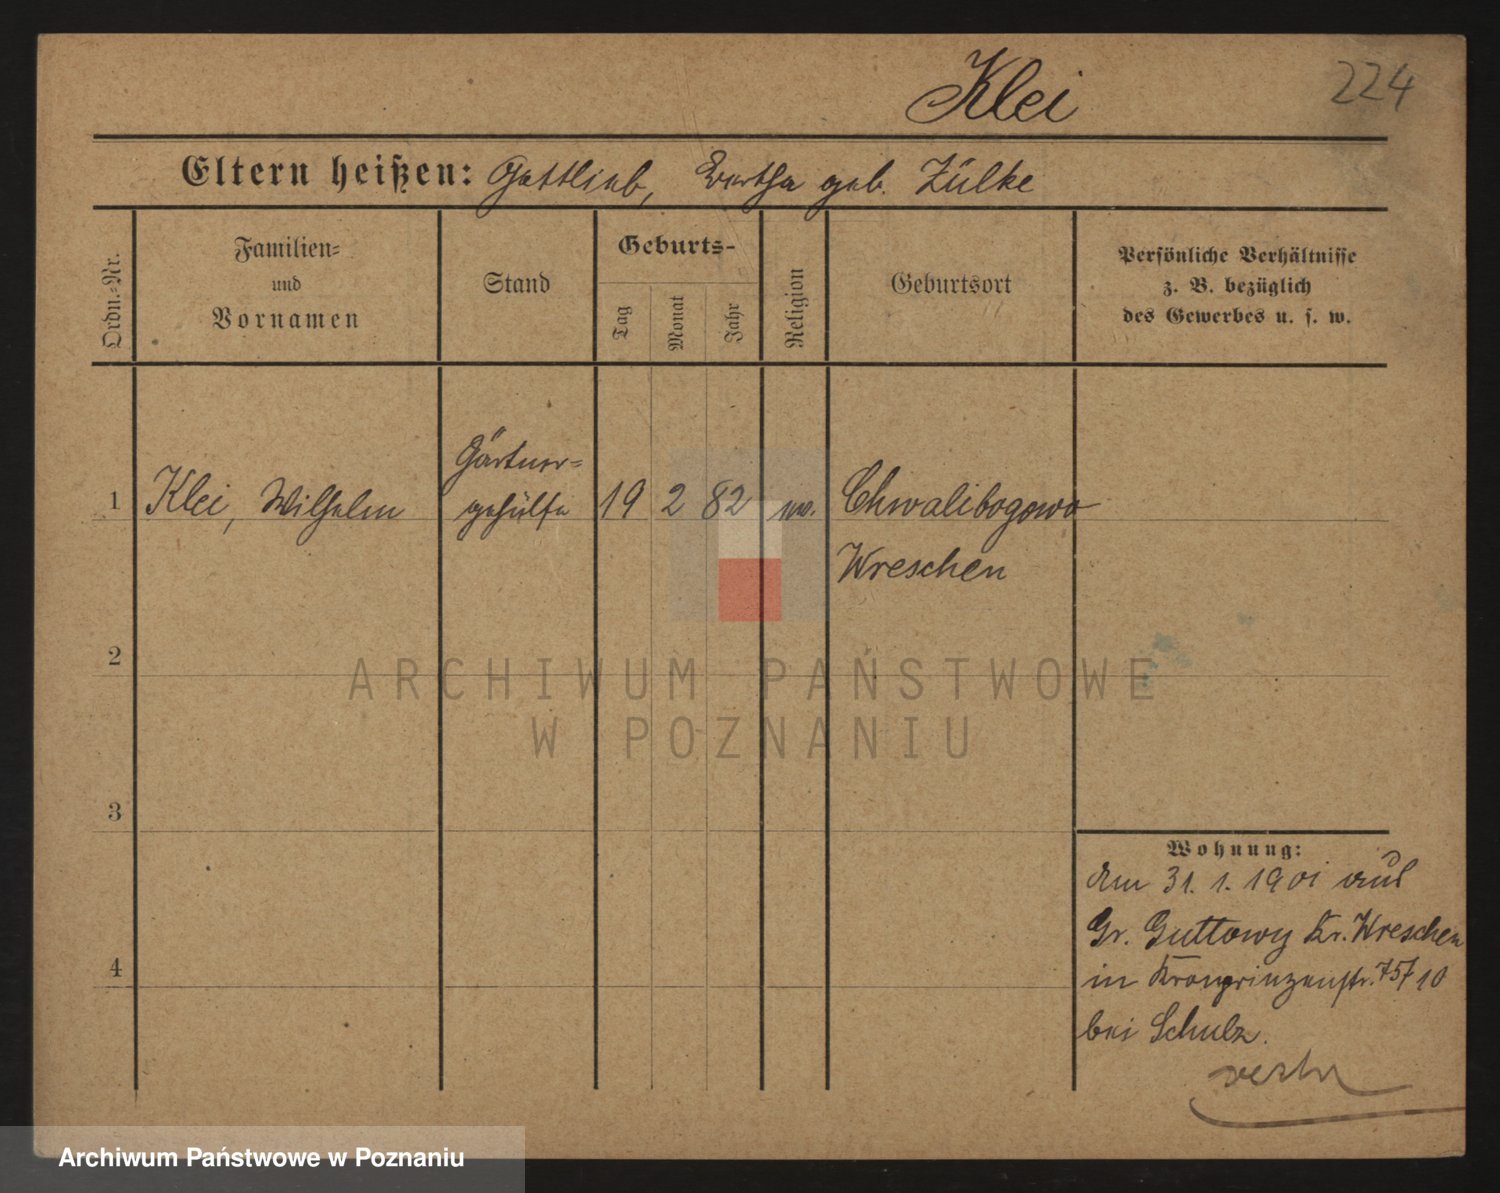 Klei
224
Eltern heißen: Gottlieb, Bertha geb. Zülke
Ordn.-Nr.
Familien-
und
Vornamen
Stand
Geburts-
Tag
Monat
Jahr
Religion
Geburtsort
Persönliche Verhältnisse
z. B. bezüglich
des Gewerbes u. s. w.
1 Klei, Wilhelm
Gärtner-
gehülfe
19 2 82 ev.
Chwalibogowo
Wreschen
2
3
4
Wohnung:
Am 31. 1. 1901 aus
Gr. Guttowy Kr. Wreschen
in Kronprinzenstr. 75/10
bei Schulz.
ARCHIWUM PAŃSTWOWE
W POZNANIU
Archiwum Państwowe w Poznaniu